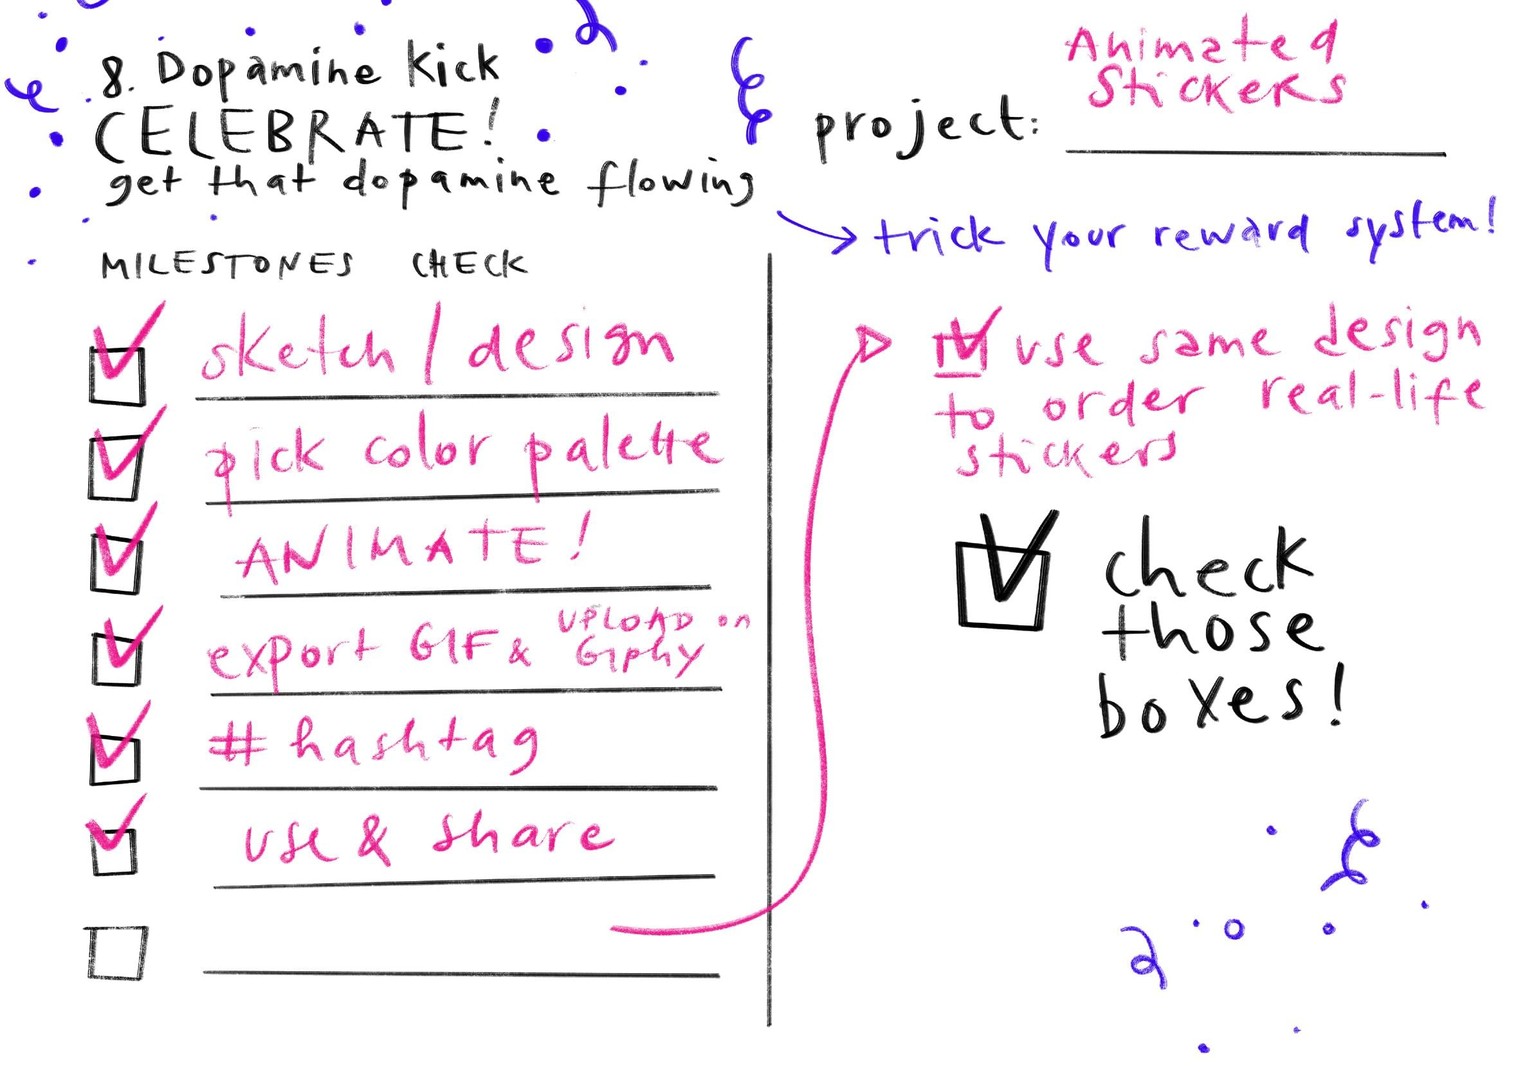 8. Dopamine Kick
CELEBRATE!
get that dopamine flowing
project: Animated
Stickers
trick your reward system!
MILESTONES CHECK
sketch / design
pick color palette
ANIMATE!
export GIF & UPLOAD on
GIPHY
# hashtag
use & share
use same design
to order real-life
stickers
check
those
boxes!